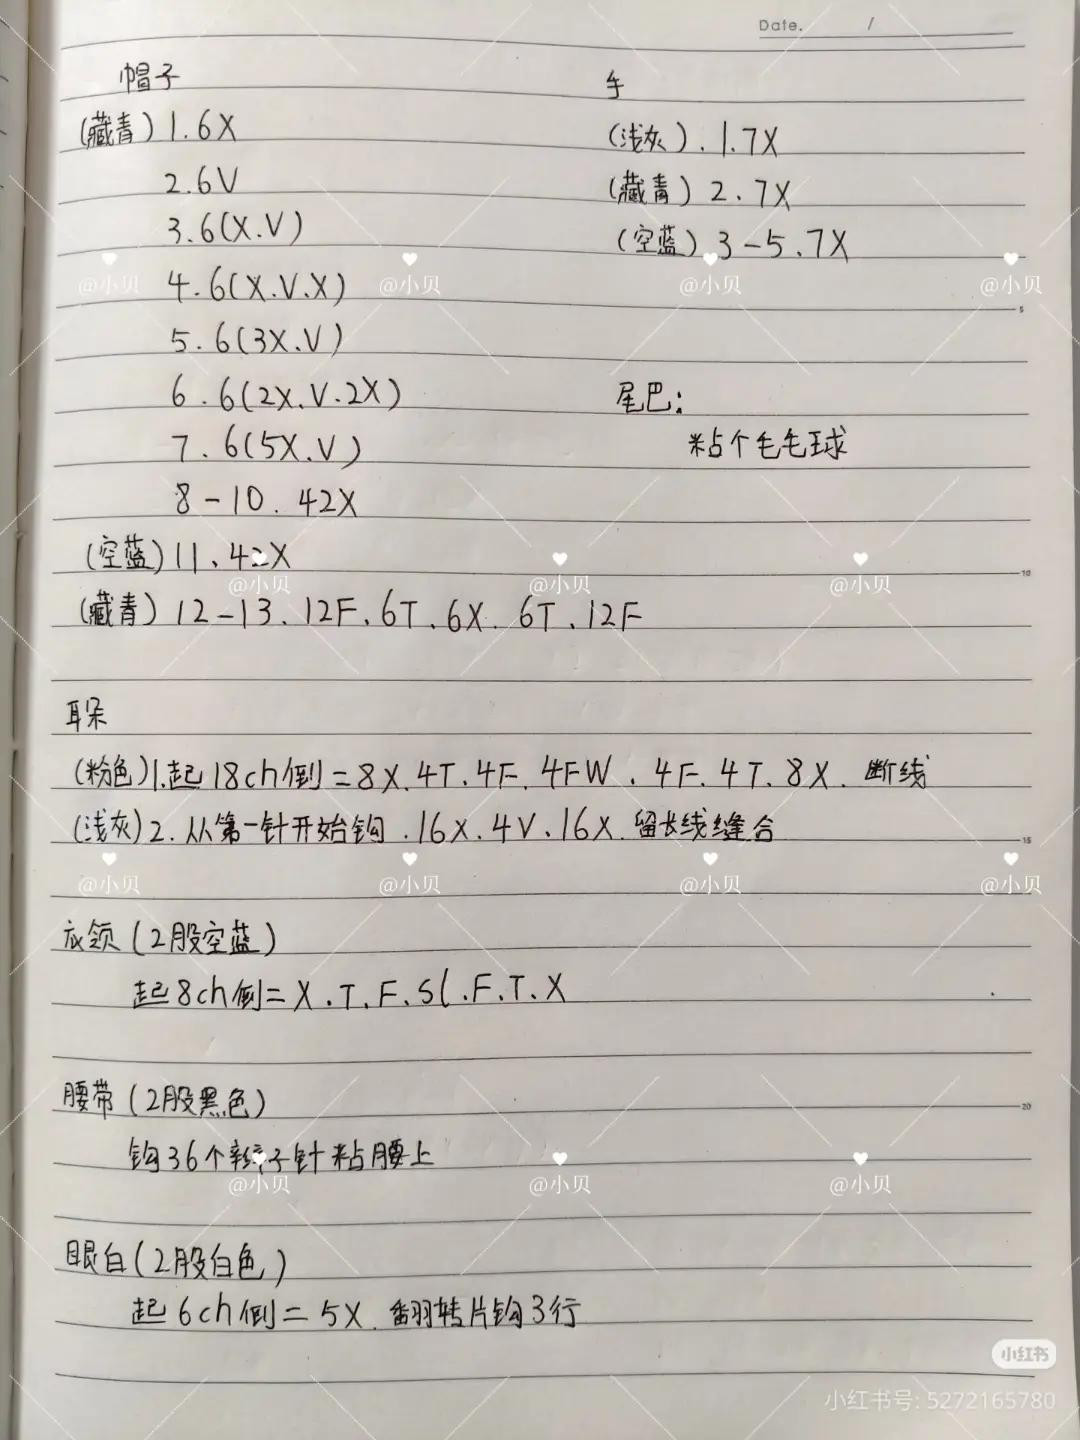 Date. /
帽子
(藏青) 1.6X
2.6V
3.6(X.V)
4.6(X.V.X)
5.6(3X.V)
6.6(2X.V.2X)
7.6(5X.V)
8-10.42X
(空蓝) 11、42X
(藏青) 12-13、12F、6T、6X、6T、12F
手
(浅灰).1.7X
(藏青) 2、7X
(空蓝) 3-5、7X
尾巴:
粘个毛毛球
耳朵
(粉色)1.起18ch倒=8X.4T.4F.4FW.4F.4T.8X. 断线
(浅灰)2.从第一针开始钩.16X.4V、16X.留长线缝合
衣领(2股空蓝)
起8ch倒=X.T.F、sl.F.T.X
腰带(2股黑色)
钩36个辫子针粘腰上
眼白(2股白色)
起6ch倒=5X.翻转片钩3行
5
10
15
20
@小贝 @小贝 @小贝 @小贝
@小贝 @小贝 @小贝
@小贝 @小贝 @小贝 @小贝
@小贝 @小贝 @小贝
小红书
小红书号: 5272165780